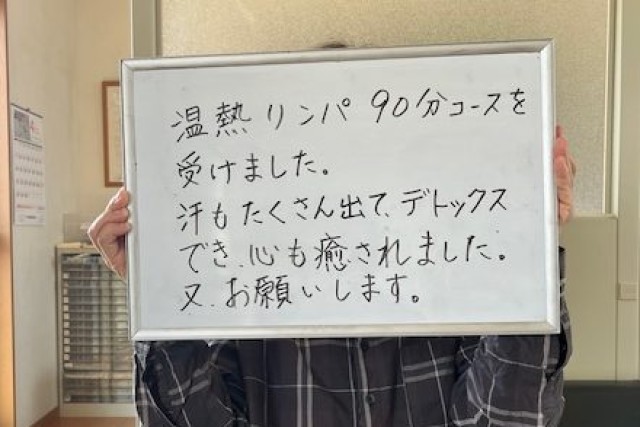 温熱リンパ 90分コースを
受けました。
汗もたくさん出て、デトックス
でき、心も癒されました。
又、お願いします。